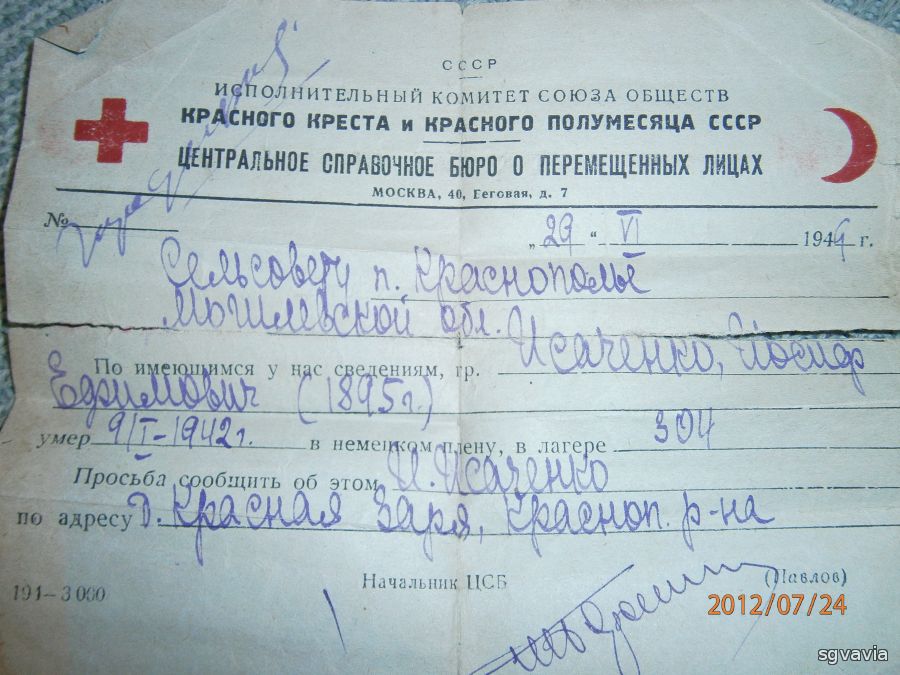 СССР
ИСПОЛНИТЕЛЬНЫЙ КОМИТЕТ СОЮЗА ОБЩЕСТВ
КРАСНОГО КРЕСТА и КРАСНОГО ПОЛУМЕСЯЦА СССР
ЦЕНТРАЛЬНОЕ СПРАВОЧНОЕ БЮРО О ПЕРЕМЕЩЕННЫХ ЛИЦАХ
МОСКВА, 40, Беговая, д. 7
№ „29“ VI 194 г.
Сельсовету п. Краснополье
Могилевской обл.
По имеющимся у нас сведениям, гр. Исаченко, Иосиф
Ефимович (1895 г.)
умер 9/I-1942 г. в немецком плену, в лагере 304
Просьба сообщить об этом И. Исаченко
по адресу Д. Красная Заря, Красноп. р-на
191—3 000 Начальник ЦСБ (Павлов)
2012/07/24
sgvavia